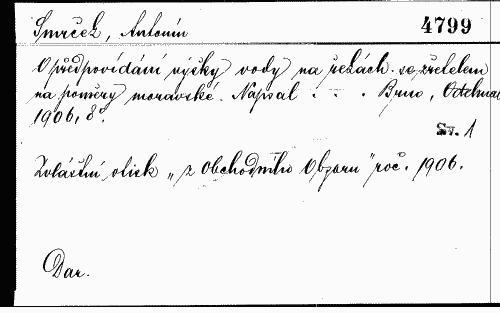 Smrček, Antonín 4799
O předpovídání výšky vody na řekách. se zřetelem
na poměry moravské. Napsal . – . Brno,
1906, 8°.
Sv. 1
Zvláštní otisk „z Obchodního Obzoru" roč. 1906.
Dar.